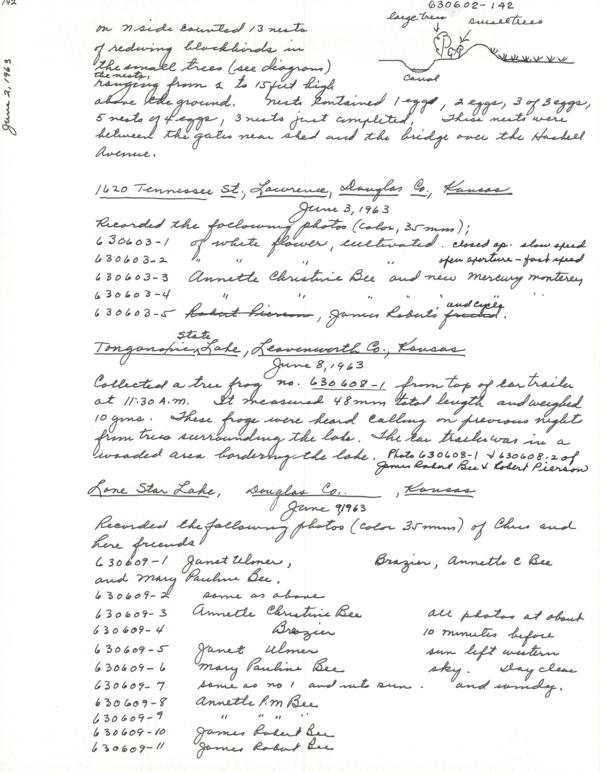 142
June 2, 1963
630602-142
large trees
small trees
canal
on N side counted 13 nests
of redwing blackbirds in
the small trees (see diagram)
the nests,
ranging from 2 to 15 feet high
above the ground. Nests contained 1 egg, 2 eggs, 3 of 3 eggs,
5 nests of 4 eggs, 3 nests just completed, These nests were
between the gates near shed and the bridge over the Haskell
Avenue.
1620 Tennessee St., Lawrence, Douglas Co., Kansas
June 3, 1963
Recorded the following photos (color, 35mm);
630603-1 of white flower, cultivated. closed ap. slow speed
630603-2 " " " " " open aperture - fast speed
630603-3 Annette Christine Bee and new Mercury Monterey
630603-4 " " " " " "
630603-5 Robert Pierson, James Roberts friend. and cycle
State
Tonganoxie Lake, Leavenworth Co., Kansas
June 8, 1963
Collected a tree frog no. 630608-1 from top of car trailer
at 11:30 A.M. It measured 48mm total length and weighed
10 gms. These frogs were heard calling on previous night
from trees surrounding the lake. The car trailer was in a
wooded area bordering the lake. Photo 630608-1 & 630608-2 of
James Robert Bee & Robert Pierson
Lone Star Lake, Douglas Co., , Kansas
June 9, 1963
Recorded the following photos (color 35mm) of Chris and
here friends
630609-1 Janet Ulmer, Brazier, Annette C Bee
and Mary Pauline Bee.
630609-2 same as above
630609-3 Annette Christine Bee all photos at about
630609-4 Brazier 10 minutes before
630609-5 Janet Ulmer sun left western
630609-6 Mary Pauline Bee sky. Day clear
630609-7 same as no 1 and sun. and windy.
630609-8 Annette P.M Bee
630609-9 " " " "
630609-10 James Robert Bee
630609-11 James Robert Bee